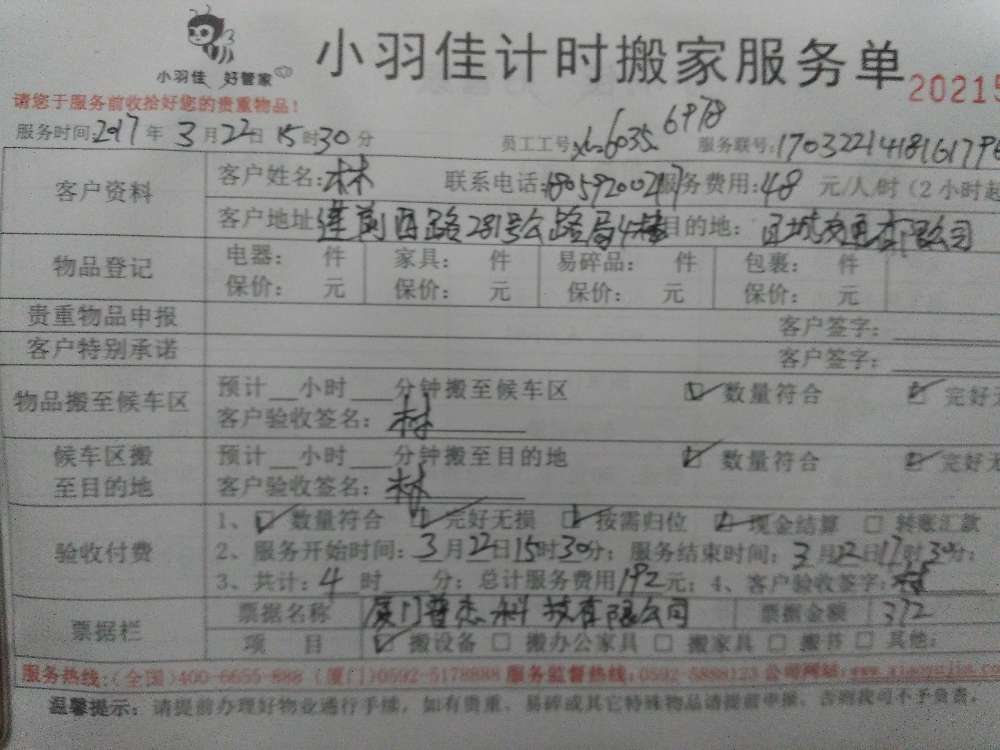 小羽佳 好管家
小羽佳计时搬家服务单
20215
请您于服务前收拾好您的贵重物品！
服务时间:2017年3月22日15时30分 员工工号 服务联号:
客户资料 客户姓名:林 联系电话: 服务费用:48元/人/时（2小时起
客户地址:莲前西路281号公路局4楼 目的地: 交通有限公司
物品登记 电器: 件 家具: 件 易碎品: 件 包裹: 件
保价: 元 保价: 元 保价: 元 保价: 元
贵重物品申报 客户签字:
客户特别承诺 客户签字:
物品搬至候车区 预计__小时___分钟搬至候车区 ☑数量符合 ☑完好无
客户验收签名:林
候车区搬至目的地 预计__小时___分钟搬至目的地 ☑数量符合 ☑完好无
客户验收签名:林
验收付费 1、☑数量符合 ☑完好无损 ☑按需归位 ☑现金结算 □转账汇款
2、服务开始时间:3月22日15时30分; 服务结束时间:3月22日17时30分;
3、共计:4时___分; 总计服务费用192元; 4、客户验收签字:林
票据栏 票据名称 厦门普杰科技有限公司 票据金额 372
项目 ☑搬设备 □搬办公家具 □搬家具 □搬书 □其他:
服务热线:(全国)400-6655-888 (厦门)0592-5178888 服务监督热线:0592-5898123 公司网站:
温馨提示: 请提前办理好物业通行手续，如有贵重、易碎或其它特殊物品请提前申报，否则我司不予负责。